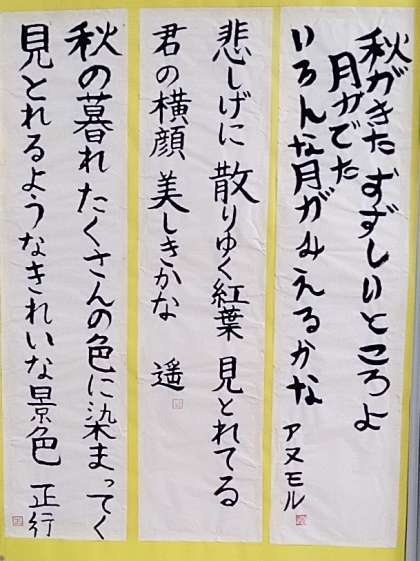 秋がきた すずしいところよ
月がでた
いろんな月がみえるかな
アヌモル
悲しげに 散りゆく紅葉 見とれてる
君の横顔 美しきかな 遥
秋の暮れ たくさんの色に染まってく
見とれるようなきれいな景色 正行